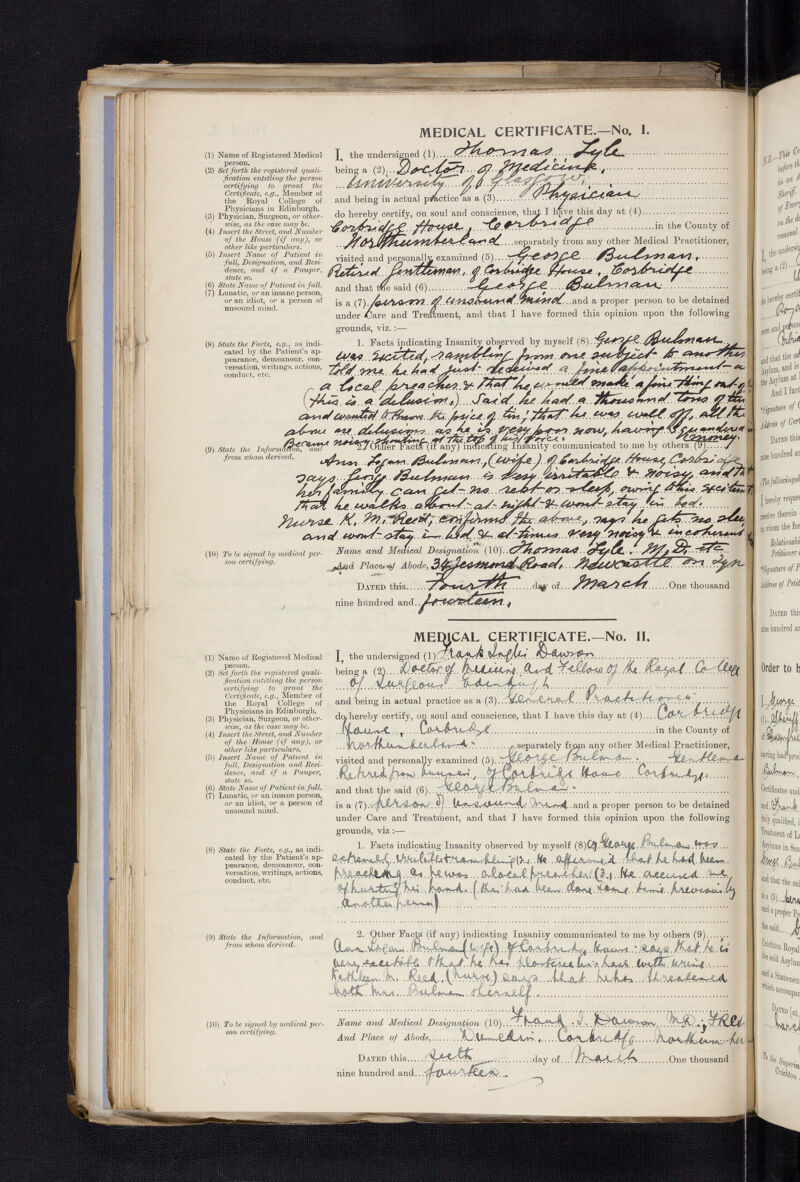 MEDICAL CERTIFICATE.—No. I.
(1) Name of Registered Medical person.
(2) Set forth the registered qualification entitling the person certifying to grant the Certificate, e.g., Member of the Royal College of Physicians in Edinburgh.
(3) Physician, Surgeon, or otherwise, as the case may be.
(4) Insert the Street, and Number of the House (if any), or other like particulars.
(5) Insert Name of Patient in full, Designation, and Residence, and if a Pauper, state so.
(6) State Name of Patient in full.
(7) Lunatic, or an insane person, or an idiot, or a person of unsound mind.
I, the undersigned (1) Thomas Lyle
being a (2) Doctor of Medicine,
University of Glasgow,
and being in actual practice as a (3) Physician
do hereby certify, on soul and conscience, that I have this day at (4)
Corbridge House, Corbridge in the County of
Northumberland separately from any other Medical Practitioner,
visited and personally examined (5) George Bulman,
Retired Gentleman, of Corbridge House, Corbridge
and that the said (6) George Bulman
is a (7) person of unsound mind and a proper person to be detained
under Care and Treatment, and that I have formed this opinion upon the following
grounds, viz. :—
(8) State the Facts, e.g., as indicated by the Patient's appearance, demeanour, conversation, writings, actions, conduct, etc.
1. Facts indicating Insanity observed by myself (8) George Bulman
was excited, rambling from one subject to another
told me he had just received a fine appointment as
a local preacher & that he would make a fine thing out of
(this is a delusion.) Said he had a thousand tons of tin
and wanted to know the price of tin; that he was well off, all the
above are delusions as he is very poor now, having squandered
Became noisy shouting at the top of his voice. money.
(9) State the Information, and from whom derived.
2. Other Facts (if any) indicating Insanity communicated to me by others (9)
Ann Logan Bulman, (wife) of Corbridge House, Corbridge
says George Bulman is very irritable & noisy, and that
her family can get no rest or sleep, owing to his excitement
that he walks about at night & wont stay in bed.
Nurse K. M. Reed, confirms the above, says he gets no sleep
and wont stay in bed & at times very noisy & incoherent
(10) To be signed by medical person certifying.
Name and Medical Designation (10) Thomas Lyle. M.D. etc
And Place of Abode, 34 Jesmond Road, Newcastle on Tyne
DATED this Fourth day of March One thousand
nine hundred and fourteen.
MEDICAL CERTIFICATE.—No. II.
(1) Name of Registered Medical person.
(2) Set forth the registered qualification entitling the person certifying to grant the Certificate, e.g., Member of the Royal College of Physicians in Edinburgh.
(3) Physician, Surgeon, or otherwise, as the case may be.
(4) Insert the Street, and Number of the House (if any), or other like particulars.
(5) Insert Name of Patient in full, Designation, and Residence, and if a Pauper, state so.
(6) State Name of Patient in full.
(7) Lunatic, or an insane person, or an idiot, or a person of unsound mind.
I, the undersigned (1) Frank Inglis Dawson
being a (2) Doctor of Medicine and Fellow of the Royal College
of Surgeons Edinburgh
and being in actual practice as a (3) General Practitioner
do hereby certify, on soul and conscience, that I have this day at (4) Corbridge
House, Corbridge in the County of
Northumberland separately from any other Medical Practitioner,
visited and personally examined (5) George Bulman. Gentleman
Retired from business, of Corbridge House Corbridge
and that the said (6) George Bulman
is a (7) person of unsound mind and a proper person to be detained
under Care and Treatment, and that I have formed this opinion upon the following
grounds, viz :—
(8) State the Facts, e.g., as indicated by the Patient's appearance, demeanour, conversation, writings, actions, conduct, etc.
1. Facts indicating Insanity observed by myself (8) George Bulman was
extremely irritable & rambling. He affirmed that he had been
preaching as he was a local preacher (2) He accused me
of hurting his hand. (this had been done some time previously by
another person)
(9) State the Information, and from whom derived.
2. Other Facts (if any) indicating Insanity communicated to me by others (9)
Ann Logan Bulman (wife) of Corbridge House says that he is
very excitable & that he has plastered his hair with urine.
Kathleen M. Reed, (nurse) says that he has threatened
both Mrs. Bulman & herself.
(10) To be signed by medical person certifying.
Name and Medical Designation (10) Frank I. Dawson M.D.; FRCS
And Place of Abode, Dunedin, Corbridge Northumber
DATED this Sixth day of March One thousand
nine hundred and fourteen